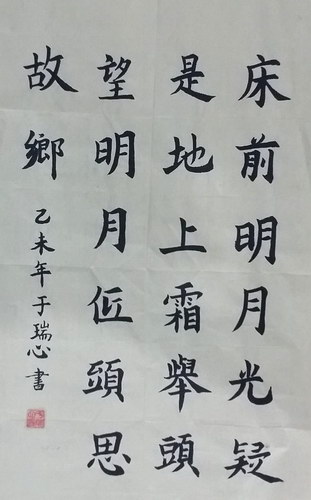 床前明月光疑
是地上霜舉頭
望明月低頭思
故鄉
乙未年于瑞心書